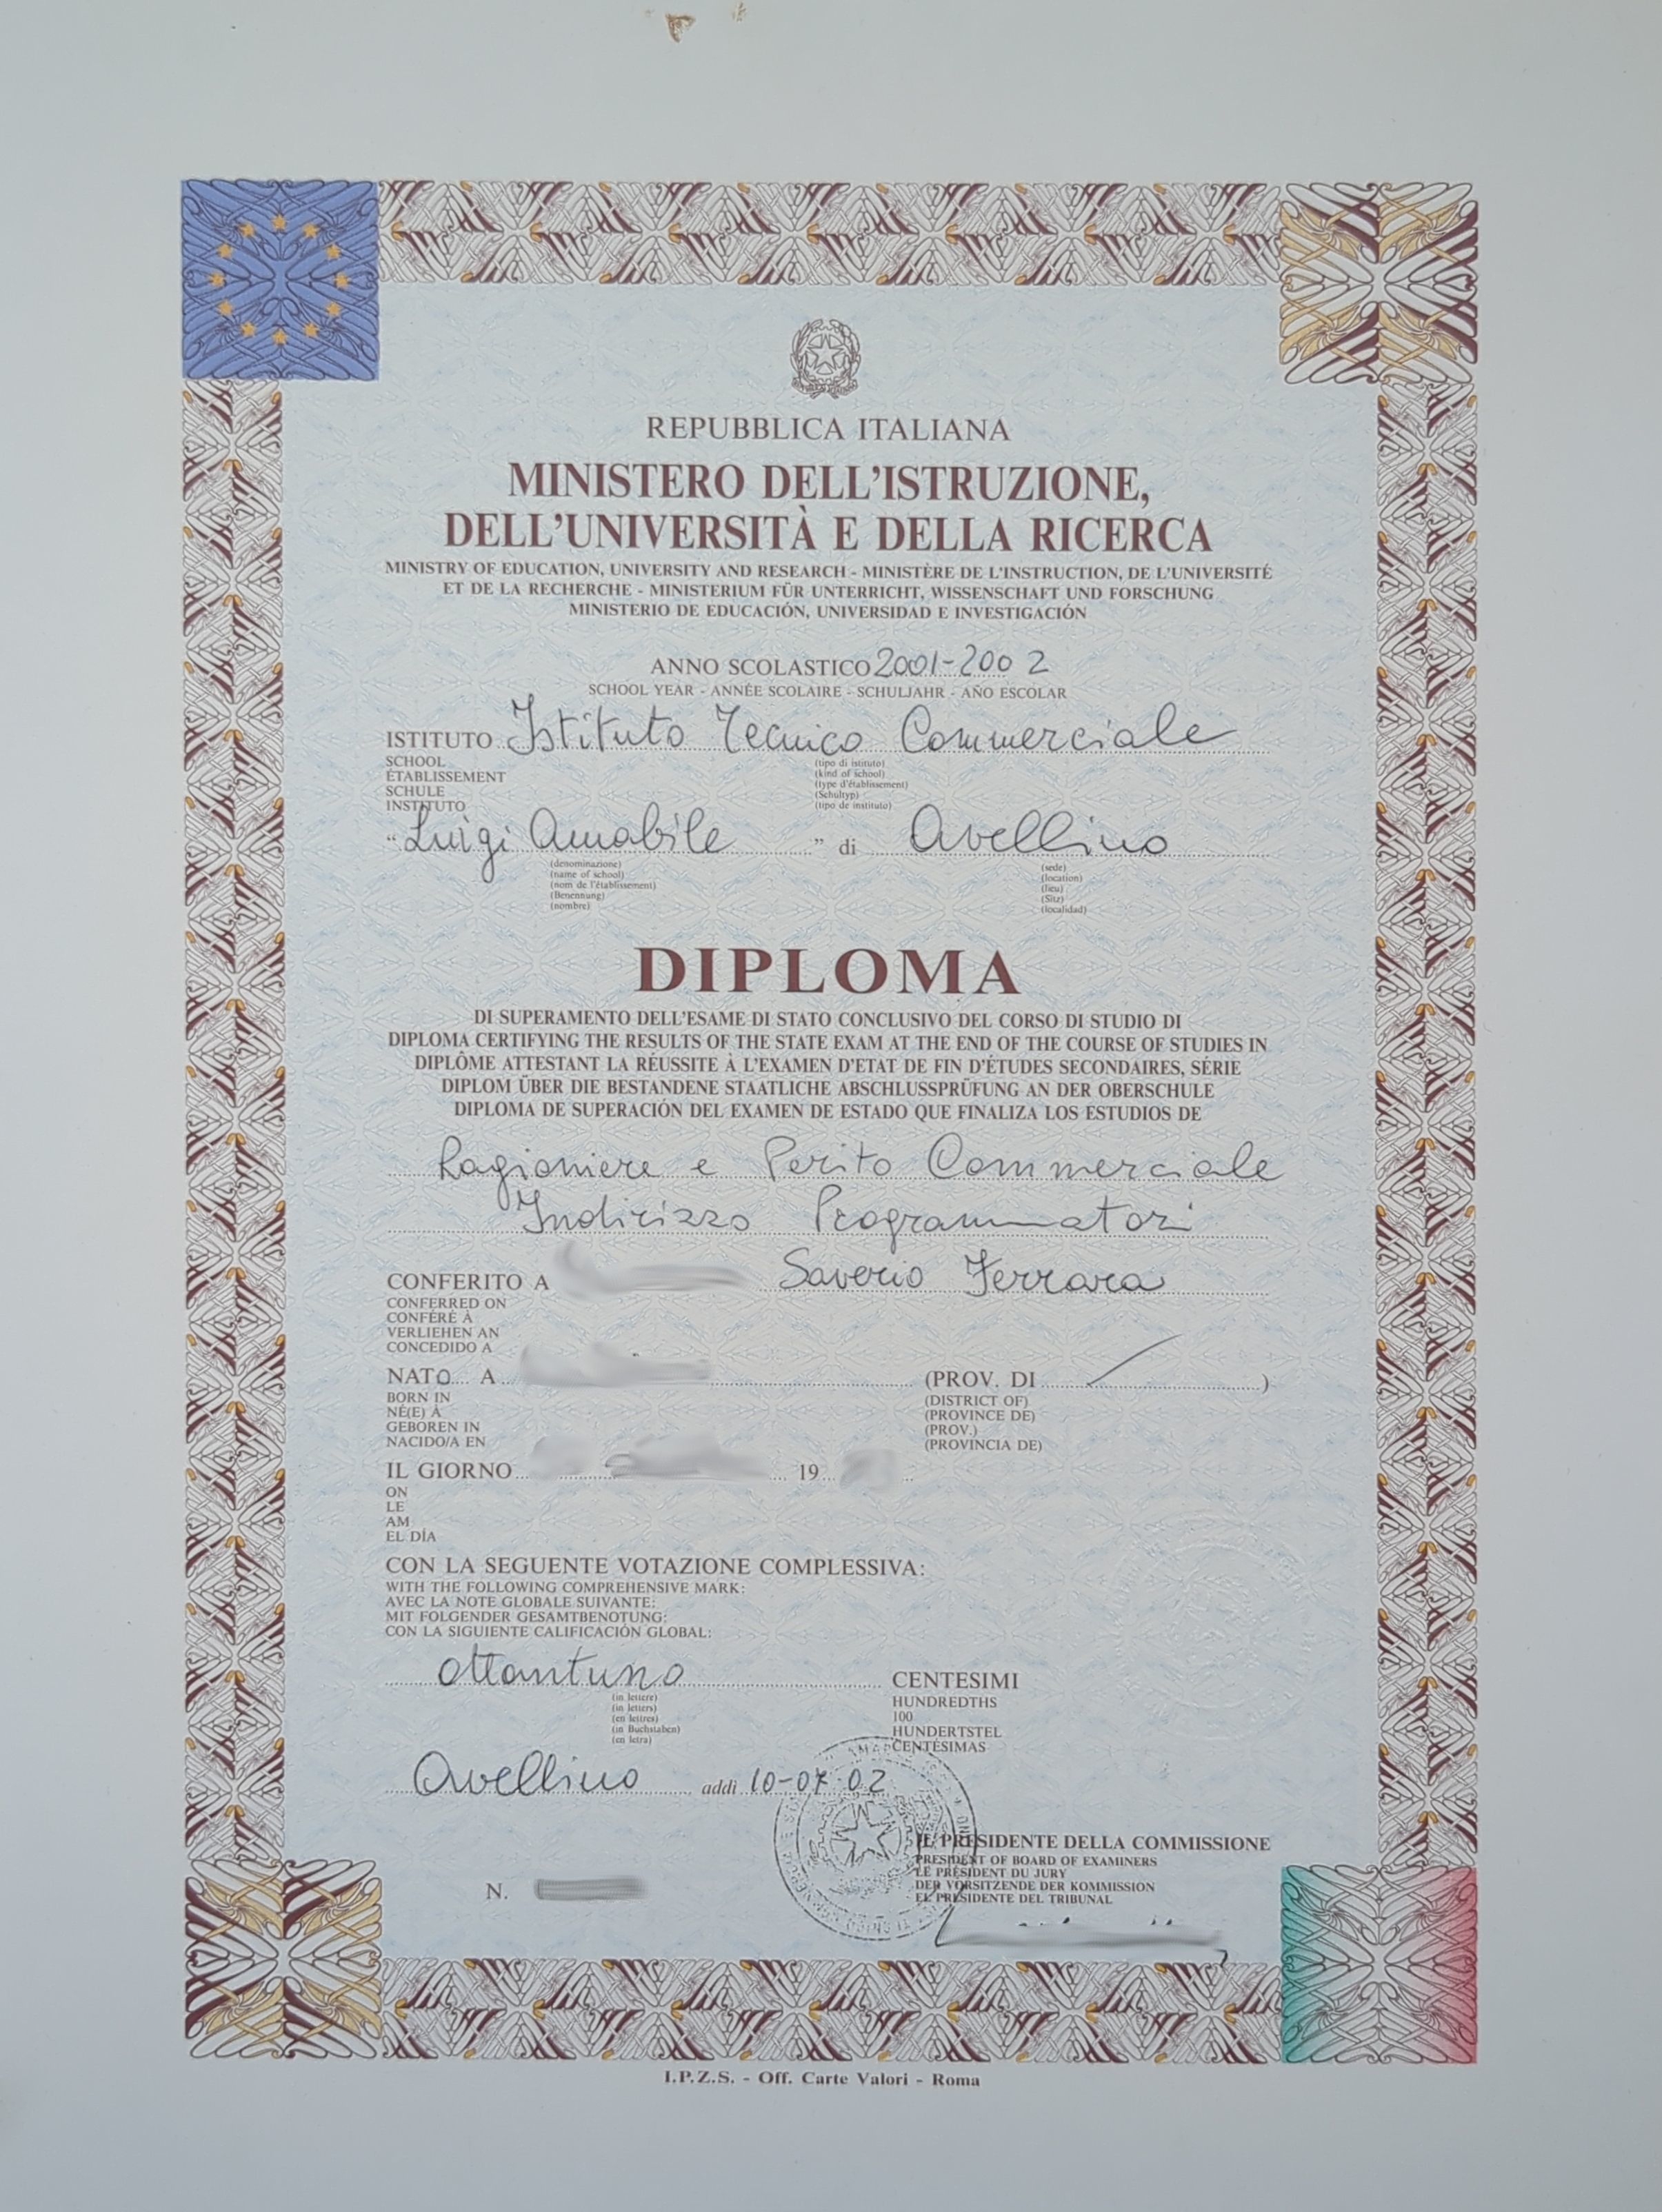 REPUBBLICA ITALIANA
MINISTERO DELL'ISTRUZIONE,
DELL'UNIVERSITÀ E DELLA RICERCA
MINISTRY OF EDUCATION, UNIVERSITY AND RESEARCH - MINISTÈRE DE L'INSTRUCTION, DE L'UNIVERSITÉ
ET DE LA RECHERCHE - MINISTERIUM FÜR UNTERRICHT, WISSENSCHAFT UND FORSCHUNG
MINISTERIO DE EDUCACIÓN, UNIVERSIDAD E INVESTIGACIÓN
ANNO SCOLASTICO 2001-2002
SCHOOL YEAR - ANNÉE SCOLAIRE - SCHULJAHR - AÑO ESCOLAR
ISTITUTO Istituto Tecnico Commerciale
SCHOOL
ÉTABLISSEMENT
SCHULE
INSTITUTO
(tipo di istituto)
(kind of school)
(type d'établissement)
(Schultyp)
(tipo de instituto)
"Luigi Amabile" di Avellino
(denominazione)
(name of school)
(nom de l'établissement)
(Benennung)
(nombre)
(sede)
(location)
(lieu)
(Sitz)
(localidad)
DIPLOMA
DI SUPERAMENTO DELL'ESAME DI STATO CONCLUSIVO DEL CORSO DI STUDIO DI
DIPLOMA CERTIFYING THE RESULTS OF THE STATE EXAM AT THE END OF THE COURSE OF STUDIES IN
DIPLÔME ATTESTANT LA RÉUSSITE À L'EXAMEN D'ETAT DE FIN D'ÉTUDES SECONDAIRES, SÉRIE
DIPLOM ÜBER DIE BESTANDENE STAATLICHE ABSCHLUSSPRÜFUNG AN DER OBERSCHULE
DIPLOMA DE SUPERACIÓN DEL EXAMEN DE ESTADO QUE FINALIZA LOS ESTUDIOS DE
Ragioniere e Perito Commerciale
Indirizzo Programmatori
CONFERITO A Saverio Ferrara
CONFERRED ON
CONFÉRÉ À
VERLIEHEN AN
CONCEDIDO A
NATO A (PROV. DI )
BORN IN
NÉ(E) À
GEBOREN IN
NACIDO/A EN
(DISTRICT OF)
(PROVINCE DE)
(PROV.)
(PROVINCIA DE)
IL GIORNO 19
ON
LE
AM
EL DÍA
CON LA SEGUENTE VOTAZIONE COMPLESSIVA:
WITH THE FOLLOWING COMPREHENSIVE MARK:
AVEC LA NOTE GLOBALE SUIVANTE:
MIT FOLGENDER GESAMTBENOTUNG:
CON LA SIGUIENTE CALIFICACIÓN GLOBAL:
ottantuno CENTESIMI
(in lettere)
(in letters)
(en lettres)
(in Buchstaben)
(en letra)
HUNDREDTHS
100
HUNDERTSTEL
CENTÉSIMAS
Avellino addì 10-07-02
IL PRESIDENTE DELLA COMMISSIONE
PRESIDENT OF BOARD OF EXAMINERS
LE PRÉSIDENT DU JURY
DER VORSITZENDE DER KOMMISSION
EL PRESIDENTE DEL TRIBUNAL
N.
I.P.Z.S. - Off. Carte Valori - Roma